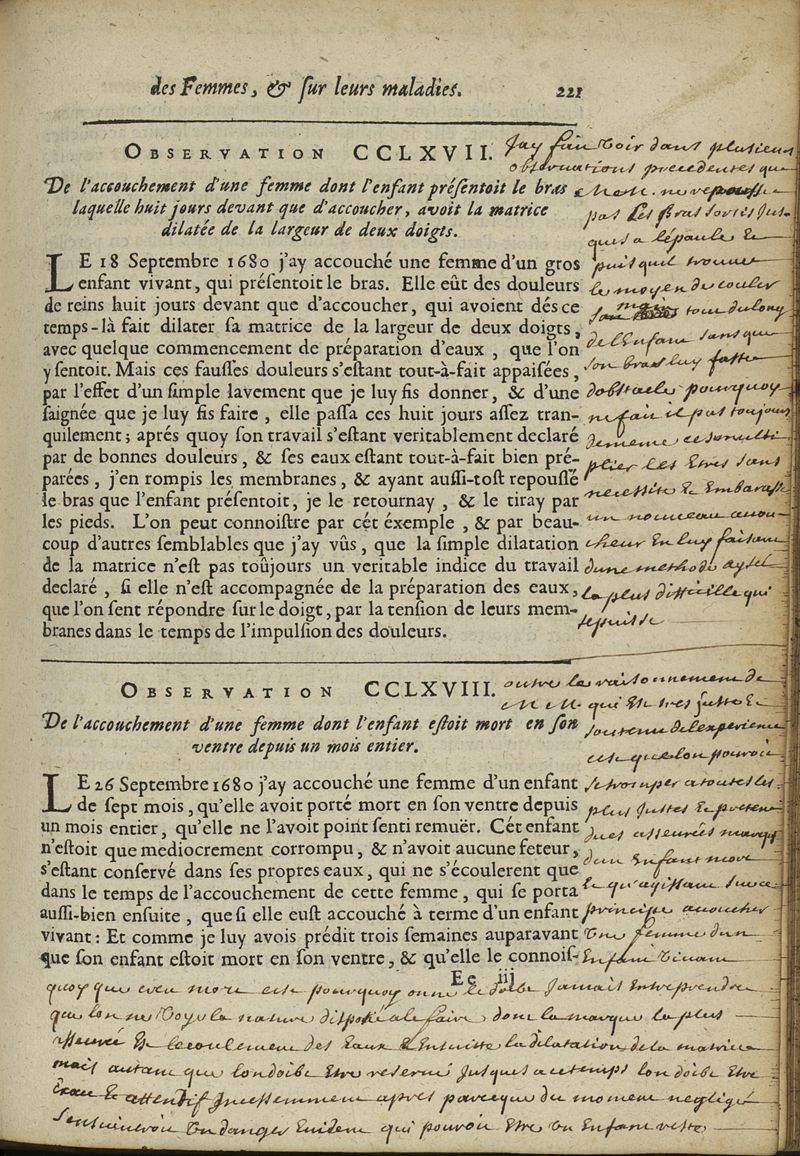 des Femmes, & sur leurs maladies. 221
OBSERVATION CCLXVII.
De l'accouchement d'une femme dont l'enfant présentoit le bras
laquelle huit jours devant que d'accoucher, avoit la matrice
dilatée de la largeur de deux doigts.
LE 18 Septembre 1680 j'ay accouché une femme d'un gros
enfant vivant, qui présentoit le bras. Elle eût des douleurs
de reins huit jours devant que d'accoucher, qui avoient dés ce
temps-là fait dilater sa matrice de la largeur de deux doigts,
avec quelque commencement de préparation d'eaux, que l'on
y sentoit. Mais ces fausses douleurs s'estant tout-à-fait appaisées,
par l'effet d'un simple lavement que je luy fis donner, & d'une
saignée que je luy fis faire, elle passa ces huit jours assez tran-
quilement; aprés quoy son travail s'estant veritablement declaré
par de bonnes douleurs, & ses eaux estant tout-à-fait bien pré-
parées, j'en rompis les membranes, & ayant aussi-tost repoussé
le bras que l'enfant présentoit, je le retournay, & le tiray par
les pieds. L'on peut connoistre par cét éxemple, & par beau-
coup d'autres semblables que j'ay vûs, que la simple dilatation
de la matrice n'est pas toûjours un veritable indice du travail
declaré, si elle n'est accompagnée de la préparation des eaux,
que l'on sent répondre sur le doigt, par la tension de leurs mem-
branes dans le temps de l'impulsion des douleurs.
Jay fait voir dans plusieurs
observations precedentes que
ne repousse
pas les bras sortis jus-
ques a lépaule &
puis quil trouve
le moyen de couler
sa main tout du long
de l'Enfant sans que
son bras luy fasse
dobstacle pourquoy
ne fait il pas toujours
de meme
plier les Etres sans
necessité & Embarasse
un nouveau accou-
cheur En luy faisant
dune methode aysée
la plus difficille qui
se puisse
OBSERVATION CCLXVIII.
De l'accouchement d'une femme dont l'enfant estoit mort en son
ventre depuis un mois entier.
LE 26 Septembre 1680 j'ay accouché une femme d'un enfant
de sept mois, qu'elle avoit porté mort en son ventre depuis
un mois entier, qu'elle ne l'avoit point senti remuër. Cét enfant
n'estoit que mediocrement corrompu, & n'avoit aucune feteur,
s'estant conservé dans ses propres eaux, qui ne s'écoulerent que
dans le temps de l'accouchement de cette femme, qui se porta
aussi-bien ensuite, que si elle eust accouché à terme d'un enfant
vivant: Et comme je luy avois prédit trois semaines auparavant
que son enfant estoit mort en son ventre, & qu'elle le connois-
Ee iij
outre le raisonnement de
qui Est tres juste &
soutenu de lexperience
cest que lon pouroit
se tromper a toutes les
plus justes & preten
dues asseurées marqs
dun Enfant mort
& qu'agissant sur ce
principe accoucher
Une femme dun
Enfant Vivant
quoy que creu mort cest pourquoy on ne le doibt Jamais Entreprendre
que lon ne Voye la nature disposée a le faire, dont la marque la plus
asseurée Est lecoulement des Eaux & Ensuitte la dilatation de la matrice
mais autant que lon doibt Etre reservé Jusques a ce temps lon doibt Etre
& attentif Incessemment apres parceque du moment negligé
sensuiveroit Un danger Evident qui pouroit Etre Un Enfant